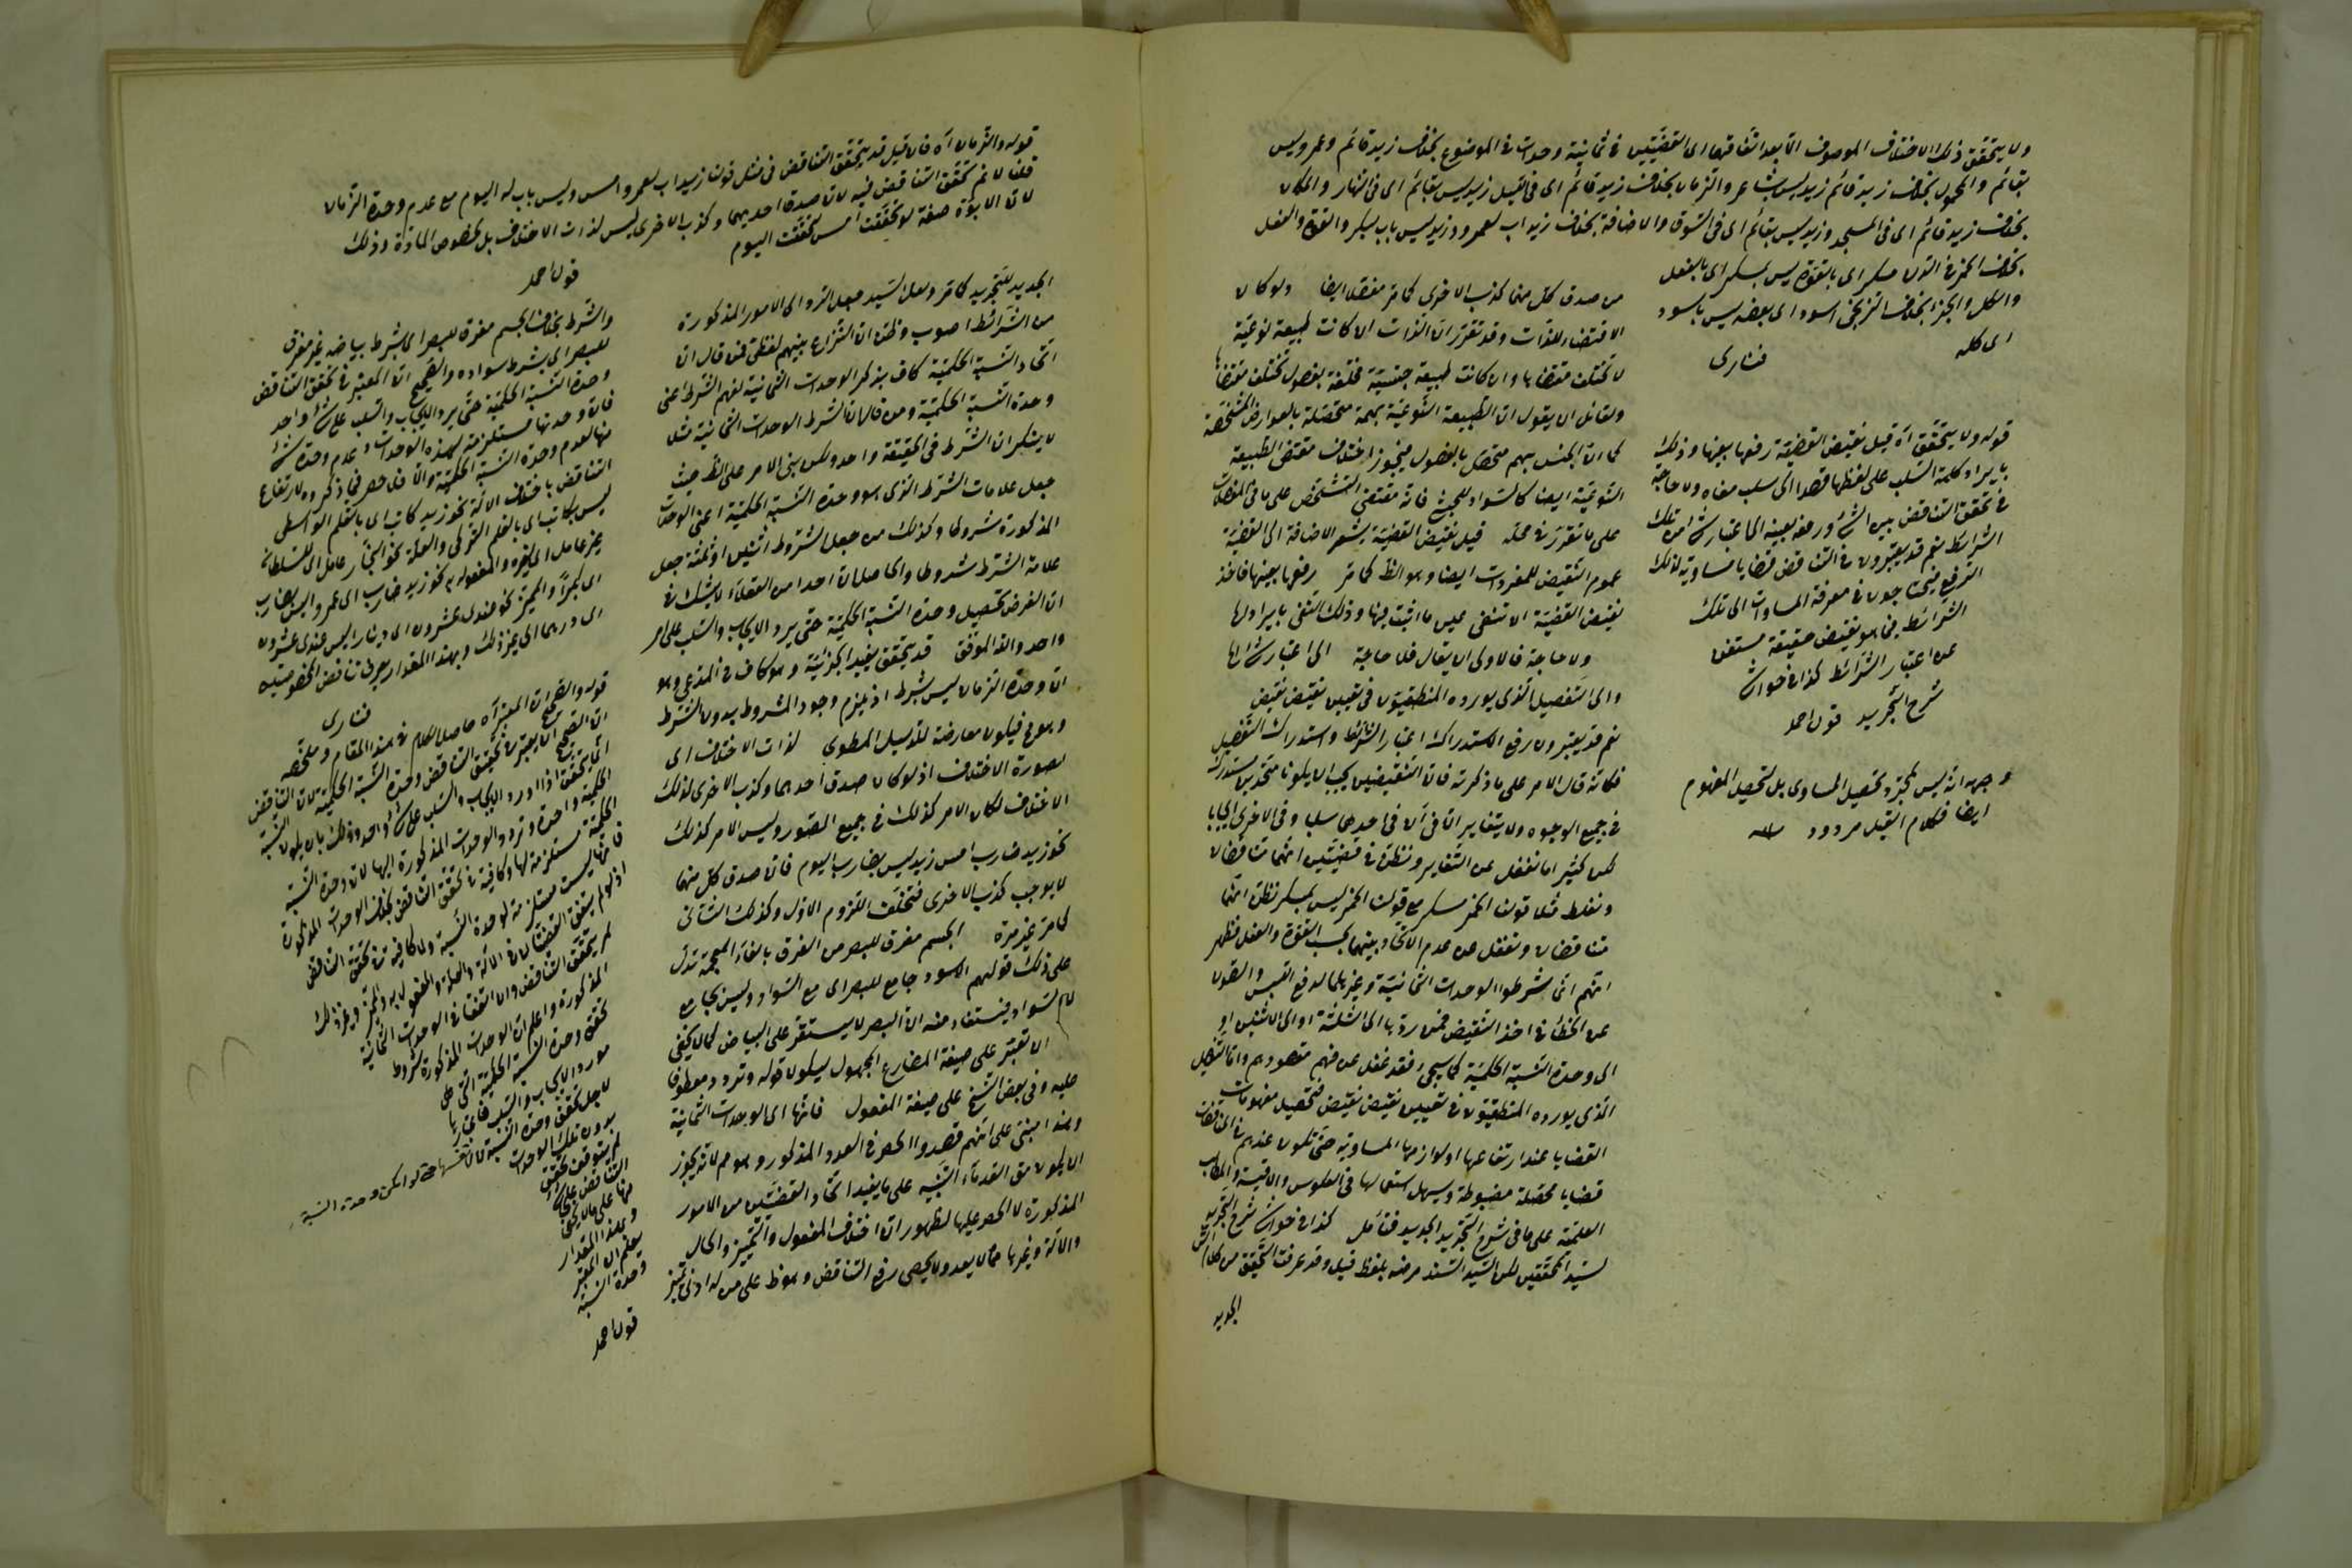 ولا يتحقق ذلك الاختلاف الموصوف الا بعد اتفاقهما اى القضيتين فى ثمانية وحدات فى الموضوع بخلاف زيد قائم وعمرو ليس
بقائم والمحمول بخلاف زيد قائم زيد ليس بشاعر والزمان بخلاف زيد قائم اى فى الليل زيد ليس بقائم اى فى النهار والمكان
بخلاف زيد قائم اى فى المسجد وزيد ليس بقائم اى فى السوق والاضافة بخلاف زيد اب لعمرو وزيد ليس باب لبكر والقوة والفعل
بخلاف الخمر فى الدن مسكر اى بالقوة ليس بمسكر اى بالفعل
والكل والجزء بخلاف الزنجى اسود اى بعضه ليس باسود
اى كله
فنارى
قوله ولا يتحقق آه قيل نقيض القضية رفعها بعينها وذلك
بايراد كلمة السلب على لفظها قصدا الى سلب معناه ولا حاجة
فى تحقق التناقض بين الشئ ورفعه بعينه الى اعتبار شئ من تلك
الشرائط نعم قد يعتبرون فى التناقض قضايا مساوية لذلك
الرفع فيحتاجون فى معرفة المساوات الى تلك
الشرائط فما هو نقيض حقيقة مستغن
عن اعتبار الشرائط كذا فى حواشى
شرح التجريد قول احمد
وجهه انه ليس لمجرد تحصيل المساوى بل لتحصيل المفهوم
ايضا فكلام القيل مردود
من صدق كل منهما كذب الاخرى كما مر مفصلا ايضا ولو كان
الاقتضاء للذات وقد تقرر ان الذات ان كانت طبيعة نوعية
لا تختلف مقتضاها وان كانت طبيعة جنسية مختلفة بفصول تختلف مقتضاها
ولقائل ان يقول ان الطبيعة النوعية مبهمة متحصلة بالعوارض المشخصة
كما ان الجنس مبهم متحصل بالفصول فيجوز اختلاف مقتضى الطبيعة
النوعية ايضا كالسواد للحبش فانه مقتضى التشخص على ما فى المفصلات
على ما تقرر فى محله قيل نقيض القضية يشعر الاضافة الى القضية
عموم النقيض للمفردات ايضا وهو الظ كما مر رفعها بعينها فاخذ
نقيض القضية ان تنفى بليس ما اثبت فيها وذلك النفى بايرادها
ولا حاجة فالاولى ان يقال فلا حاجة الى اعتبار شرائطها
والى التفصيل الذى يورده المنطقيون فى تعيين نقيض نقيض
نعم قد يعتبرون رفع الاستدراك اعتبار الشرائط واستدراك التفصيل
فكانه قال الامر على ما ذكرته فان النقيضين يجب ان يكونا متحدين
فى جميع الوجوه ولا يتغايران الا فى ان فى احديهما سلبا وفى الاخرى ايجابا
لكن كثيرا ما نغفل عن التغاير ونظن فى قضيتين انهما تناقضان
ونغلط مثلا قولنا الخمر مسكر مع قولنا الخمر ليس بمسكر نظن انهما
متناقضان ونغفل عن عدم الاتحاد بينهما بحسب القوة والفعل فظهر
انهم انما شرطوا الوحدات الثمانية وغيرها لدفع اللبس والصون
عن الخطأ فى اخذ النقيض فمن ردها الى الثلثة او الى الاثنين او
الى وحدة النسبة الحكمية كما سيجئ فقد غفل عن فهم مقصودهم واما التفصيل
الذى يورده المنطقيون فى تعيين نقيض نقيض فتحصيل مفهومات
القضايا عند ارتفاعها او لوازمها المساوية حتى تكون عندهم فى المناقضات
قضايا محصلة مضبوطة ويسهل استعمالها فى العكوس والاقيسة والمطالب
العلمية على ما فى شرح التجريد الجديد فتأمل كذا فى حواشى شرح التجريد
لسيد المحققين لكن السيد السند مرضه بلفظ قيل وقد عرفت التحقيق من كلام
الجديد
قوله والزمان آه فان قيل قد يتحقق التناقض فى مثل قولنا زيد اب لعمرو امس وليس باب له اليوم مع عدم وحدة الزمان
قلنا لا نم تحقق التناقض فيه لان صدق احديهما وكذب الاخرى ليس لذات الاختلاف بل لخصوص المادة وذلك
لان الابوة صفة لو تحققت امس تحققت اليوم
قول احمد
الجديد للتجريد كما مر ولعل السيد جعل الرد الى الامور المذكورة
من الشرائط اصوب وظنه ان النزاع بينهم لفظى فمن قال ان
اتحاد النسبة الحكمية كاف بذكر الوحدات الثمانية لفهم الشرط اعنى
وحدة النسبة الحكمية ومن قال ان الشرط الوحدات الثمانية مثلا
لا ينكر ان الشرط فى الحقيقة واحد ولكن بنى الامر على الظ حيث
جعل علامات الشرط الذى هو وحدة النسبة الحكمية اعنى الوحدات
المذكورة شروطا وكذلك من جعل الشروط اثنين او ثلثة جعل
علامة الشرط شروطا والحاصل ان احدا من العقلاء لا يشك فى
ان الغرض تحصيل وحدة النسبة الحكمية حتى يرد الايجاب والسلب على امر
واحد والله الموفق قد يتحقق يفيد الجزئية وهو كاف فى المدعى وهو
ان وحدة الزمان ليس بشرط اذ يلزم وجود المشروط بدون الشرط
وهو مح فيكون معارضة للدليل المطوى لذات الاختلاف اى
لصورة الاختلاف اذ لو كان صدق احدهما وكذب الاخرى لذلك
الاختلاف لكان الامر كذلك فى جميع الصور وليس الامر كذلك
نحو زيد ضارب امس زيد ليس بضارب اليوم فان صدق كل منهما
لا يوجب كذب الاخرى فتخلف اللزوم الاول وكذلك الثانى
كما مر غير مرة الجسم مفرق للبصر من الفرق بالفاء المعجمة تدل
على ذلك قولهم الاسود جامع للبصر اى مع السواد وليس بجامع
لا سواد فيستفاد منه ان البصر لا يستقر على البياض كما لا يخفى
ان تعتبر على صيغة المضارع المجهول ليكون قوله وترد معطوفا
عليه وفى بعض النسخ على صيغة المفعول فانها اى الوحدات الثمانية
وهذا مبنى على انهم قصدوا الحصر فى العدد المذكور وهو مم لانه يجوز
ان يكون من القدماء التنبيه على ما يفيد اتحاد القضيتين من الامور
المذكورة لا الحصر عليها لظهور ان اختلاف المفعول والتمييز والحال
والآلة وغيرها مما لا يعد ولا يحصى يرفع التناقض وهو ظ على من له ادنى تمييز
والشرط بخلاف الجسم مفرق للبصر اى بشرط بياضه غير مفرق
للبصر اى بشرط سواده والصحيح ان المعتبر فى تحقق التناقض
وحدة النسبة الحكمية حتى يرد الايجاب والسلب على شئ واحد
فان وحدتها مستلزمة لهذه الوحدات وعدم وحدة شئ
منها لعدم وحدة النسبة الحكمية والا فلا حصر فيما ذكروه لارتفاع
التناقض باختلاف الآلة نحو زيد كاتب اى بالقلم الواسطى
ليس بكاتب اى بالقلم التركى والعلة نحو النجار عامل اى للسلطان
غير عامل اى لغيره والمفعول به نحو زيد ضارب اى عمروا ليس بضارب
اى بكرا والمميز نحو عندى عشرون اى دينارا ليس عندى عشرون
اى درهما الى غير ذلك وبهذا المقدار يعرف تناقض المخصوصتين
فنارى
قوله والصحيح ان المعتبر آه حاصل الكلام فى هذا المقام وملخصه
ان الصحيح ان يعتبر فى تحقق التناقض وحدة النسبة الحكمية لان التناقض
انما يتحقق اذا ورد الايجاب والسلب على شئ واحد وذلك بان يكون النسبة
الحكمية واحدة وترد الوحدات المذكورة اليها لان وحدة النسبة
الحكمية مستلزمة لها وكافية فى تحقق التناقض بخلاف الوحدات المذكورة
فانها ليست مستلزمة لوحدة النسبة ولا كافية فى تحقق التناقض
اذ لو لم يتفق القضيتان فى الآلة والعلة والمفعول به والمميز وغير ذلك
لم يتحقق التناقض وان اتفقتا فى الوحدات الثمانية
المذكورة واعلم ان الوحدات المذكورة شروط
تحقق وحدة النسبة الحكمية التى هى
مورد الايجاب والسلب فاعتبارها
لاجل تحقق وحدة النسبة لا نفسها حتى لو امكن وحدة النسبة
بدون تلك الوحدات
لم يتوقف تحقق
التناقض على شئ
منها على ما لا يخفى
وبهذا المقدار
يعلم ان المعتبر
وحدة النسبة
قول احمد